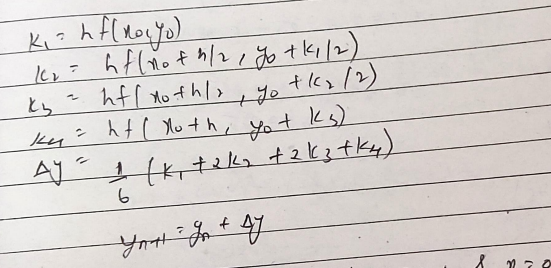 k₁ = hf(x₀,y₀)
k₂ = hf(x₀ + h/2, y₀ + k₁/2)
k₃ = hf(x₀ + h/2, y₀ + k₂/2)
k₄ = hf(x₀ + h, y₀ + k₃)
Δy = 1/6 (k₁ + 2k₂ + 2k₃ + k₄)
yₙ₊₁ = yₙ + Δy
& n = 0